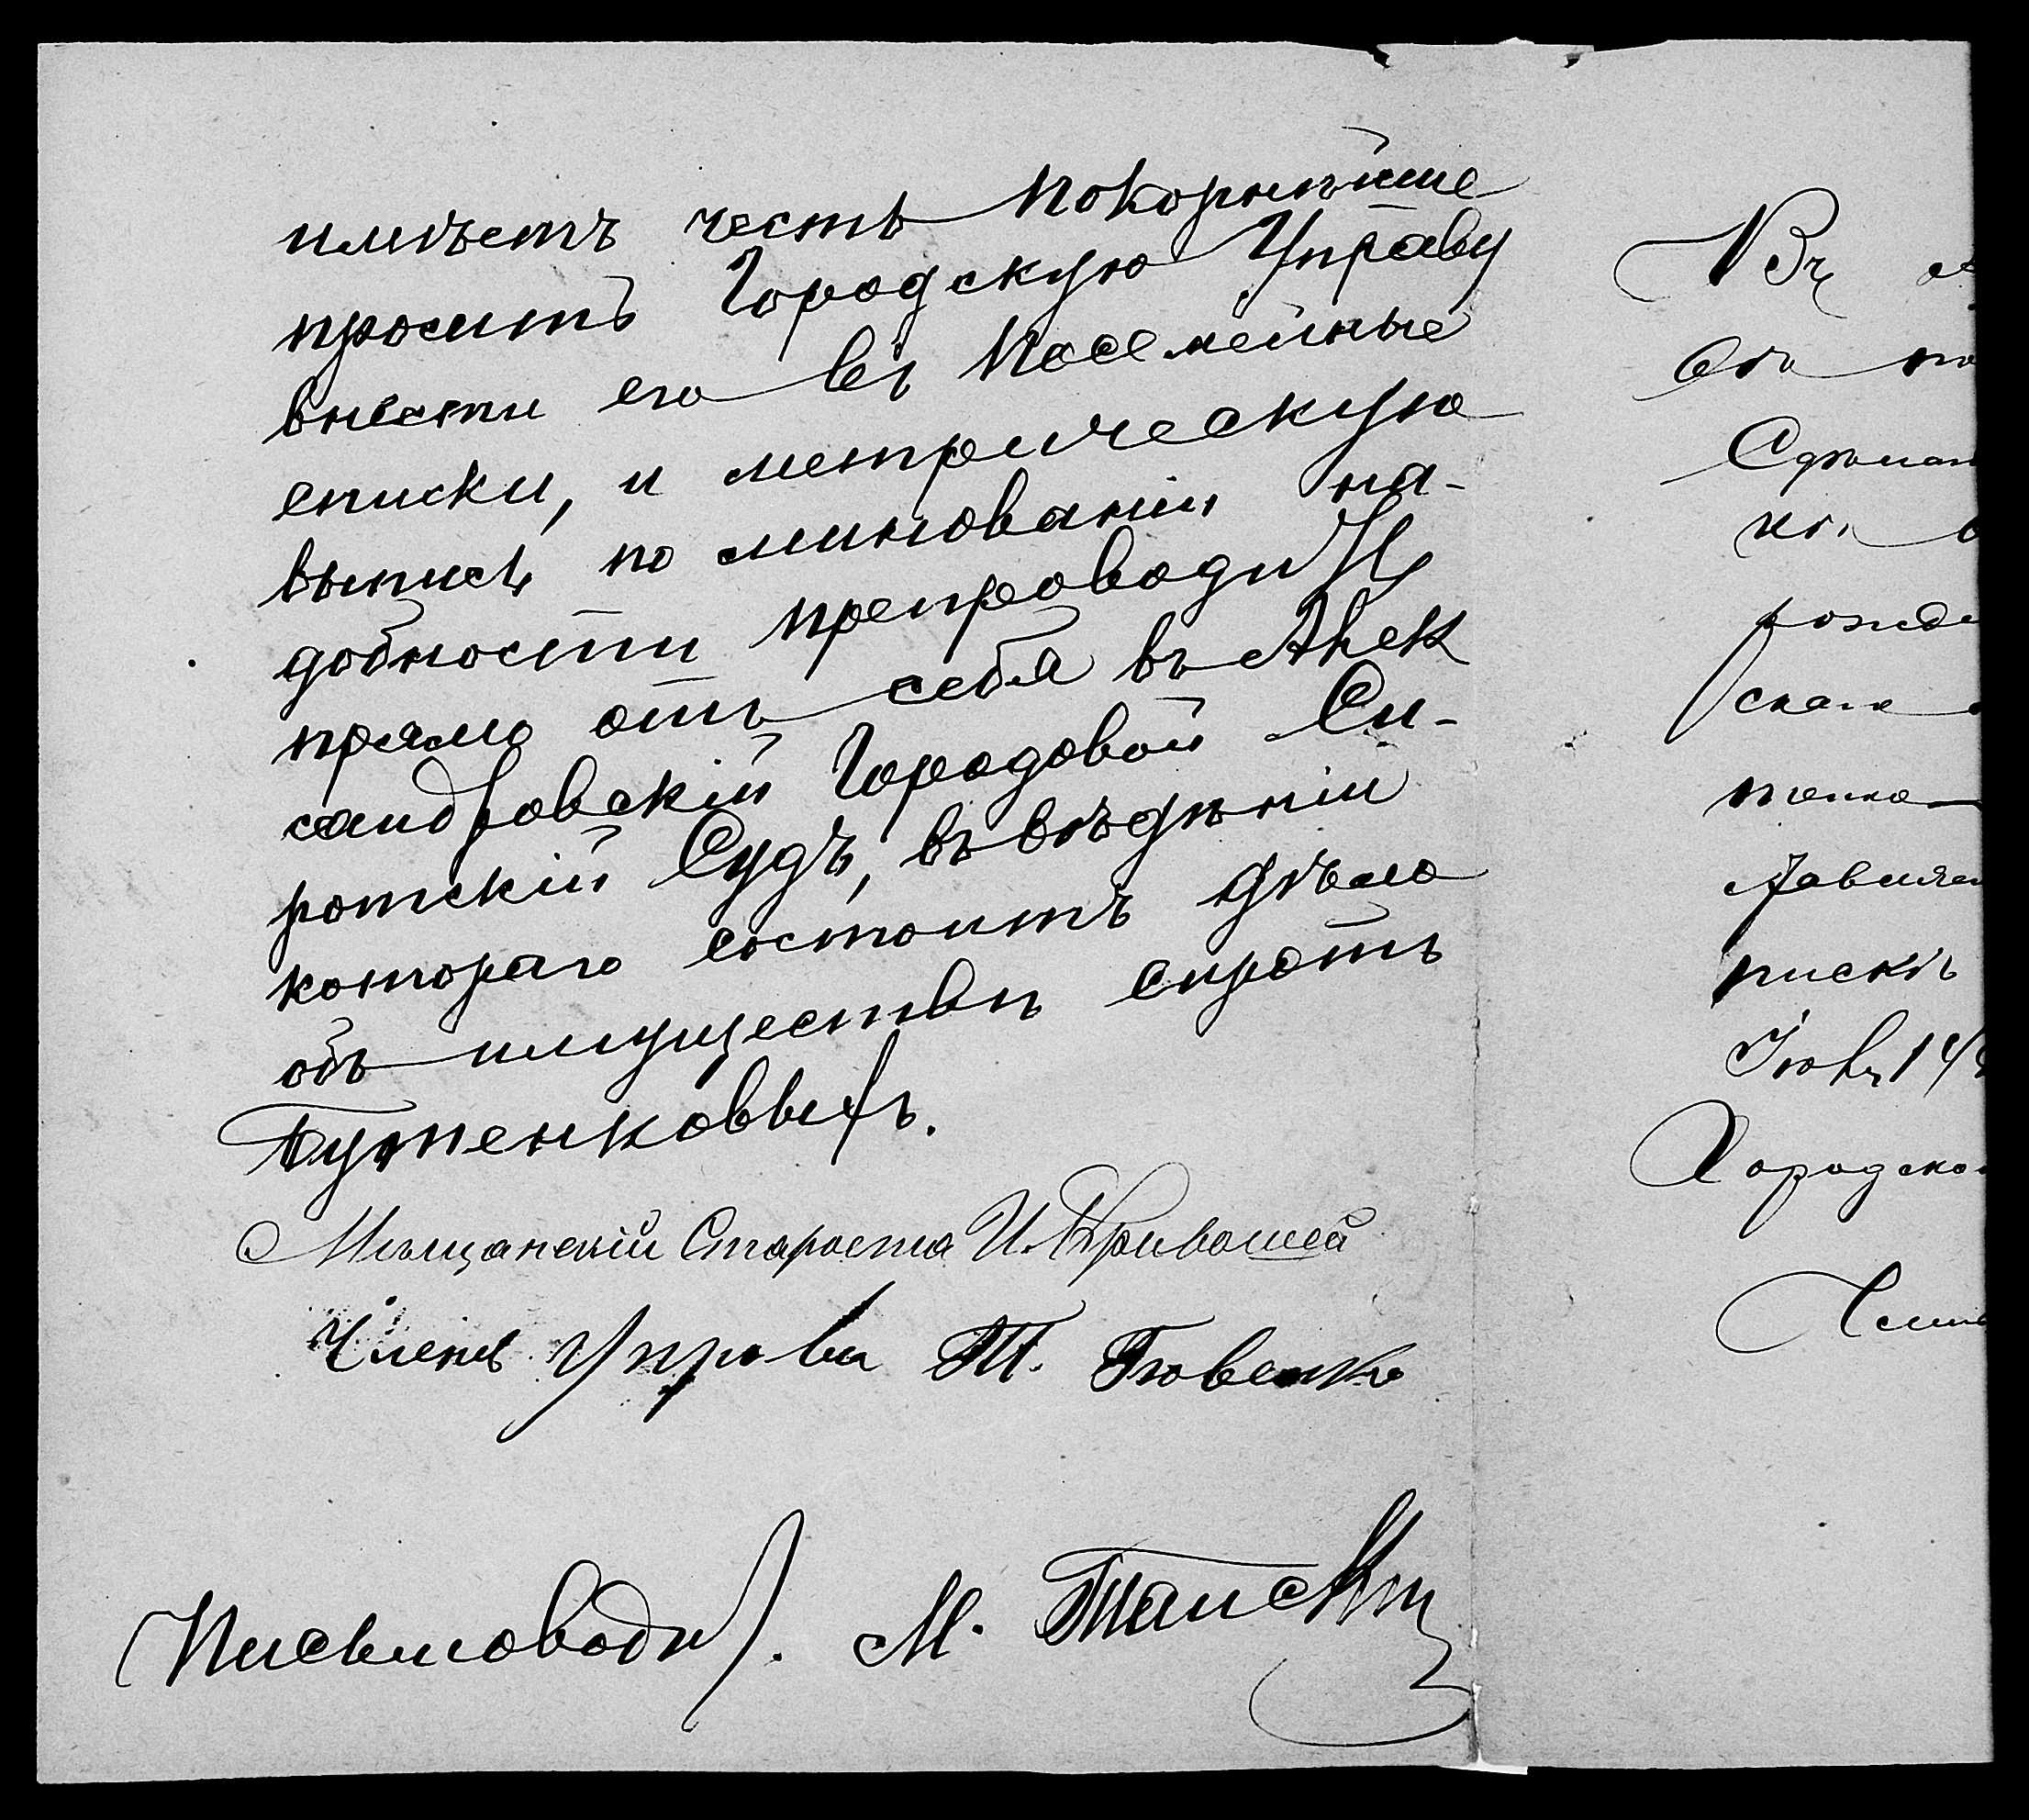 имѣетъ честь покорнѣйше
проситъ Городскую Управу
внести его въ посемейные
списки, и метрическую
выпись по минованіи на-
добности препроводить
прямо отъ себя въ Алек
сандровскій Городовой Си-
ротскій Судъ, въ вѣдѣніи
котораго состоитъ дѣло
объ имуществѣ сиротъ
Бутенковыхъ.
Мѣщанскій Староста И. Кривошей
Членъ Управы Т.
Письмоводит. М.
Въ
рожде
писки
Городско